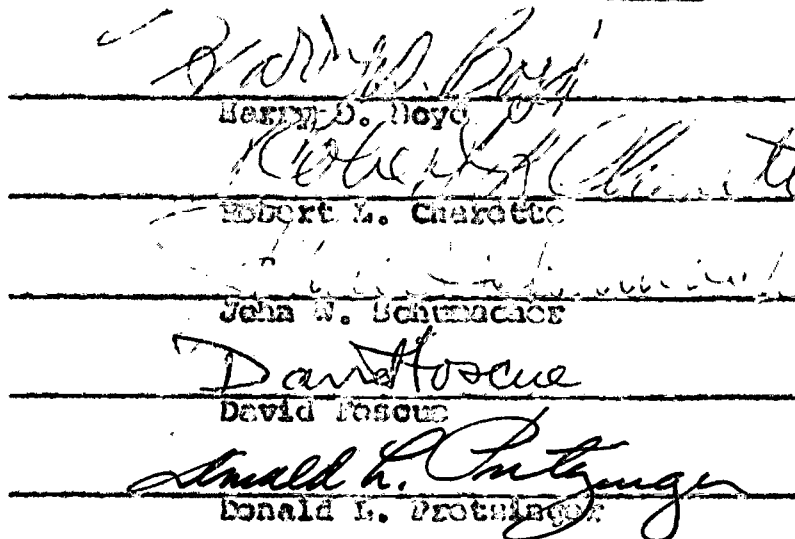 Harry D. Boyd
Harry D. Boyd
Robert L. Charette
Robert L. Charette
John W. Schumacher
David Foscue
David Foscue
Donald L. Protzinger